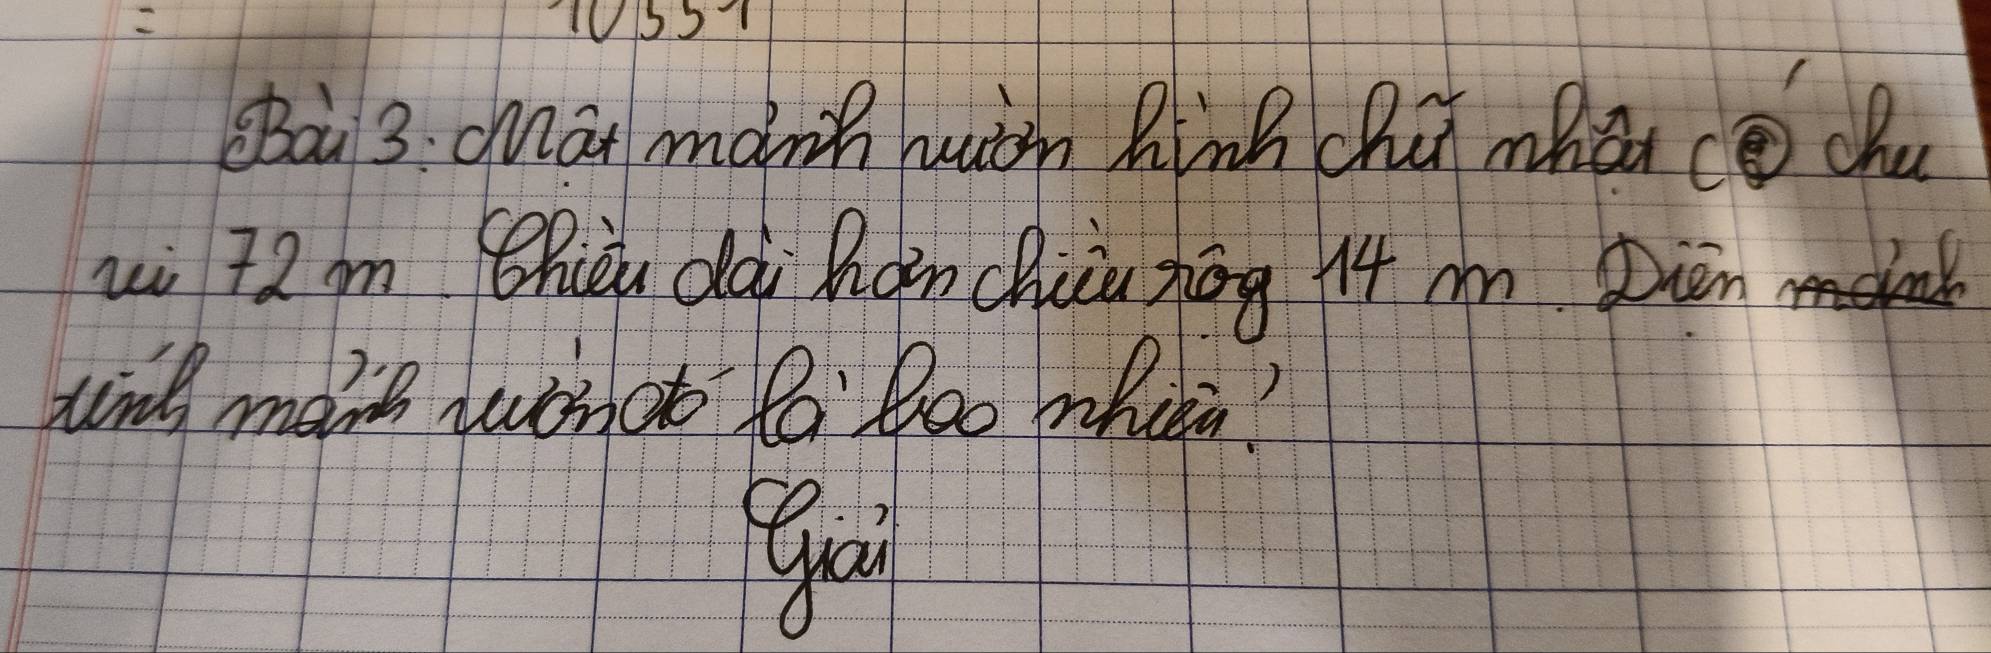 = 10551
Bài 3: Một mảnh vườn hình chữ nhật có chu
vi 72 m. Chiều dài hơn chiều rộg 14 m. Diện mảnh
tính mảnh vườn đó là bao nhiêu?
Giải